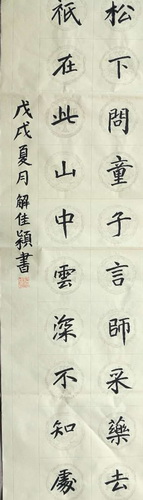 松下問童子言師采藥去
祇在此山中雲深不知處
戊戌夏月解佳潁書